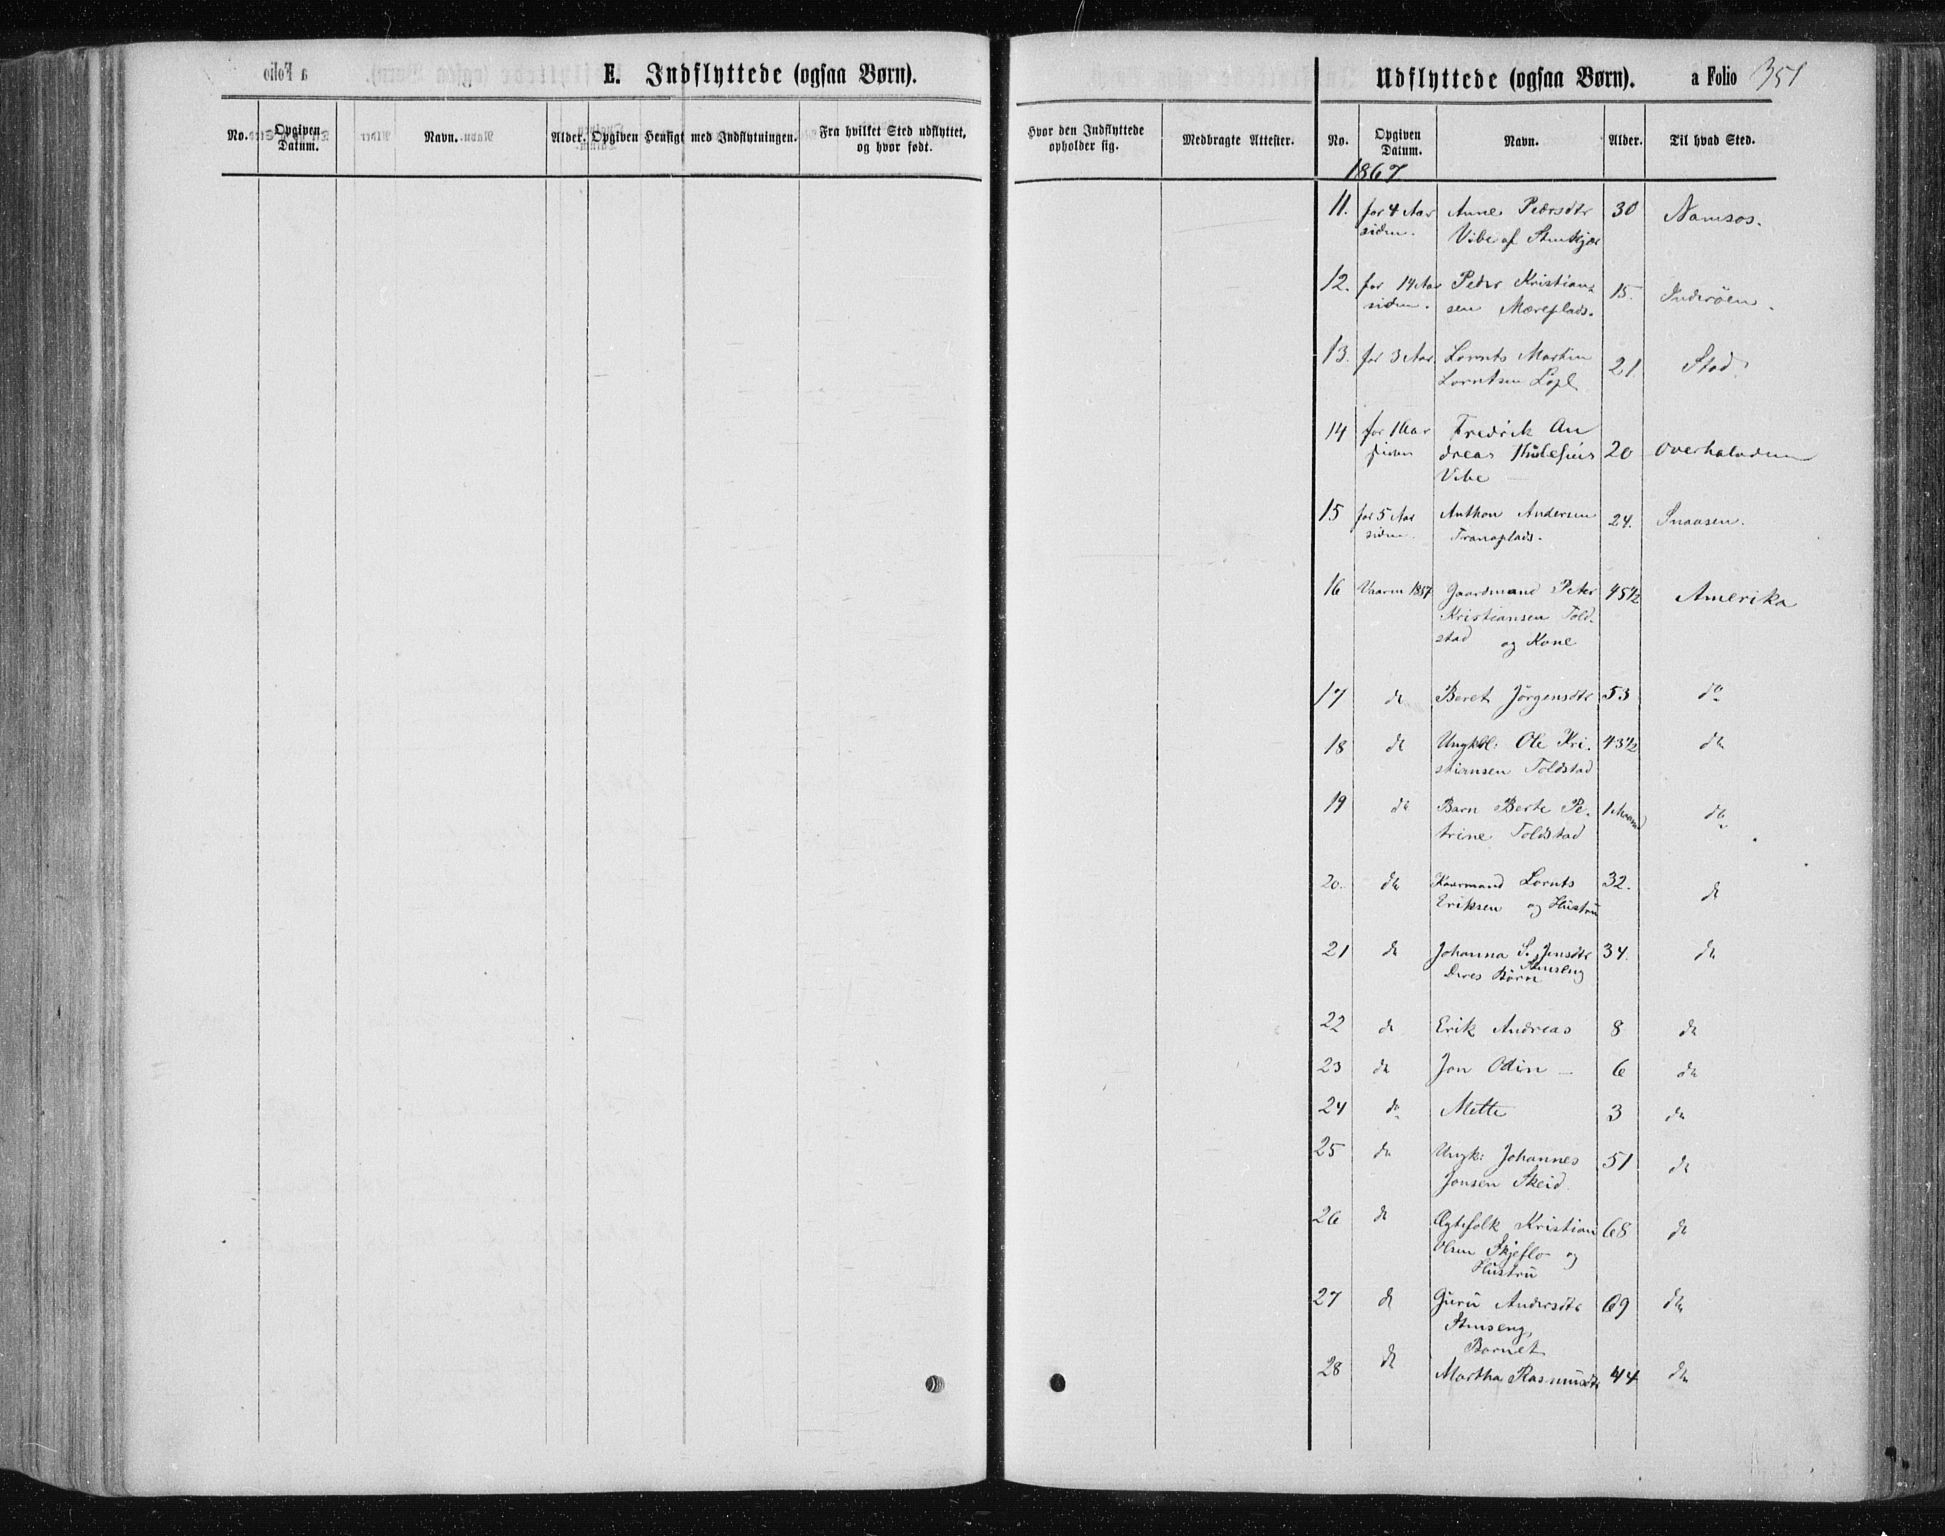 E. Indflyttede (ogsaa Børn).
No.
Opgiven Datum.
Navn.
Alder.
Opgiven Hensigt med Indflytningen.
Fra hvilket Sted udflyttet, og hvor født.
Hvor den Indflyttede opholder sig.
Medbragte Attester.
Udflyttede (ogsaa Børn). a Folio 351
No.
Opgiven Datum.
Navn.
Alder.
Til hvad Sted.
1867
11. for 4 Aar Anne Pedersdtr 30 Namsos.
siden. Vibe af Stenkjær
12. for 14 Aar Peder Kristian= 15. Inderöen.
siden. sen Mæreplads.
13. for 3 Aar Lornts Martin 21. Stod.
Lorntsen
14 for 1 Aar Fredrik An 20 Overhalvden
siden dreas
Vibe
15 for 5 Aar Anthon Andersen 24. Snaasen.
siden. Tranaplads.
16 Vaaren 1857 Gaardmand Peter 45½ Amerika
Kristiansen Told-
stad og Kone
17 do Beret Jörgensdtr 53 do
18 do Ungkl: Ole Kri- 43½ do
stiansen Toldstad
19 do Barn Berte Pe- 1 Maaned do
trine Toldstad
20. do Kaarmand Lornts 32. do
Eriksen og Hustru
21 do Johanna S. Jensdtr 34. do
Stenseng
Deres Börn
22 do Erik Andreas 8 do
23 do Jon Odin — 6 do
24 do Mette 3 do
25 do Ungk: Johannes 51 do
Jonsen Skeid.
26 do Ægtefolk Kristian 68 do
Olsen Skjeflo og
Hustru
27 do Guru Andersdtr 69 do
Stenseng,
Barnet
28 do Martha Rasmusdtr 44 do